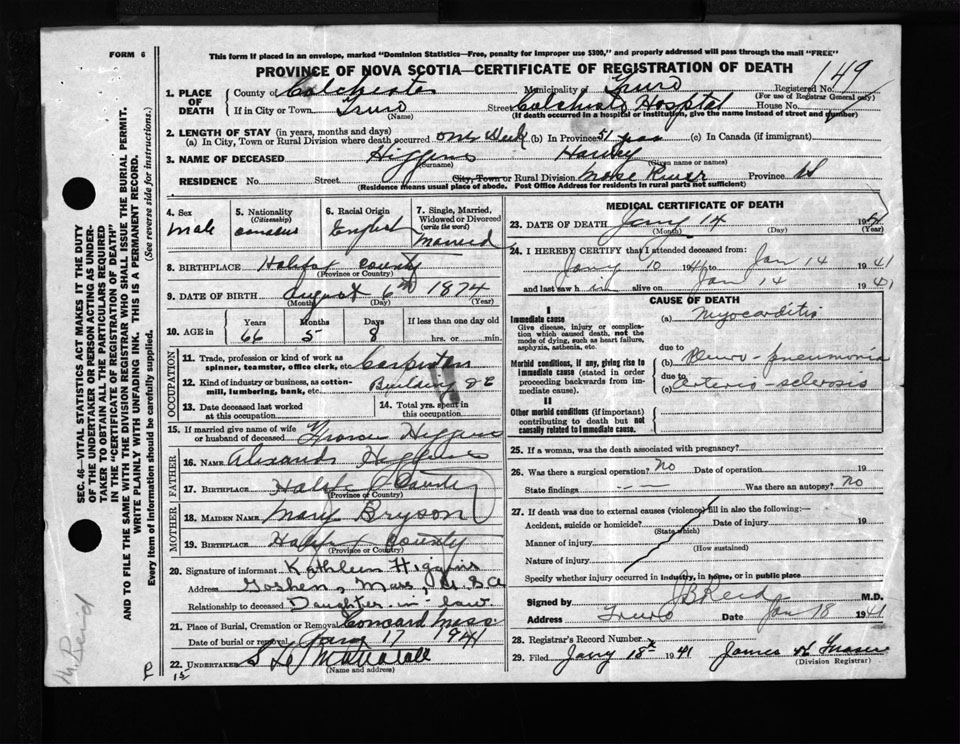 FORM 6
This form if placed in an envelope, marked "Dominion Statistics—Free, penalty for improper use $300," and properly addressed will pass through the mail "FREE"
PROVINCE OF NOVA SCOTIA—CERTIFICATE OF REGISTRATION OF DEATH
149
1. PLACE OF DEATH
County of Colchester Municipality of Truro Registered No.
(For use of Registrar General only)
If in City or Town Truro Street Colchester Hospital House No.
(Name) (If death occurred in a hospital or institution, give the name instead of street and number)
2. LENGTH OF STAY (in years, months and days)
(a) In City, Town or Rural Division where death occurred one week (b) In Province 51 yrs (c) In Canada (if immigrant)
3. NAME OF DECEASED Higgins Harvey
(Surname) (Given name or names)
RESIDENCE No. Street City, Town or Rural Division Moose River Province NS
(Residence means usual place of abode. Post Office Address for residents in rural parts not sufficient)
4. Sex
male
5. Nationality
(Citizenship)
6. Racial Origin
English
7. Single, Married, Widowed or Divorced
(write the word)
Married
8. BIRTHPLACE Halifax County
(Province or Country)
9. DATE OF BIRTH August 6th 1874
(Month) (Day) (Year)
10. AGE in
Years Months Days If less than one day old
66 5 8 hrs. or min.
OCCUPATION
11. Trade, profession or kind of work as spinner, teamster, office clerk, etc. Carpenter
12. Kind of industry or business, as cotton-mill, lumbering, bank, etc. Building
13. Date deceased last worked at this occupation
14. Total yrs. spent in this occupation
15. If married give name of wife or husband of deceased Higgins
FATHER
16. NAME Higgins
17. BIRTHPLACE Halifax County
(Province or Country)
MOTHER
18. MAIDEN NAME Mary Bryson
19. BIRTHPLACE Halifax County
(Province or Country)
20. Signature of informant Kathleen Higgins
Address Goshen, Mass, U.S.A
Relationship to deceased Daughter-in-law
21. Place of Burial, Cremation or Removal Concord Mass
Date of burial or removal Jany 17 1941
22. UNDERTAKER
(Name and address)
MEDICAL CERTIFICATE OF DEATH
23. DATE OF DEATH Jany 14 1941
(Month) (Day) (Year)
24. I HEREBY CERTIFY that I attended deceased from:
Jany 10 1941 to Jan 14 1941
and last saw him alive on Jan 14 1941
CAUSE OF DEATH
I
Immediate cause
Give disease, injury or complication which caused death, not the mode of dying, such as heart failure, asphyxia, asthenia, etc.
(a) Myocarditis
due to
Morbid conditions, if any, giving rise to immediate cause (stated in order proceeding backwards from immediate cause).
(b) Pleuro-pneumonia
due to
(c) Arterio-sclerosis
II
Other morbid conditions (if important) contributing to death but not causally related to immediate cause.
25. If a woman, was the death associated with pregnancy?
26. Was there a surgical operation? No Date of operation 19
State findings Was there an autopsy? No
27. If death was due to external causes (violence) fill in also the following:—
Accident, suicide or homicide? Date of injury 19
(State which)
Manner of injury
(How sustained)
Nature of injury
Specify whether injury occurred in industry, in home, or in public place
Signed by J B Reid M.D.
Address Truro Date Jan 18 1941
28. Registrar's Record Number
29. Filed Jany 18th 1941 James Fraser
(Division Registrar)
SEC. 46—VITAL STATISTICS ACT MAKES IT THE DUTY
OF THE UNDERTAKER OR PERSON ACTING AS UNDERTAKER
TO OBTAIN ALL THE PARTICULARS REQUIRED
IN THE "CERTIFICATE OF REGISTRATION OF DEATH"
AND TO FILE THE SAME WITH THE DIVISION REGISTRAR WHO SHALL ISSUE THE BURIAL PERMIT.
WRITE PLAINLY WITH UNFADING INK. THIS IS A PERMANENT RECORD.
Every item of information should be carefully supplied. (See reverse side for instructions.)